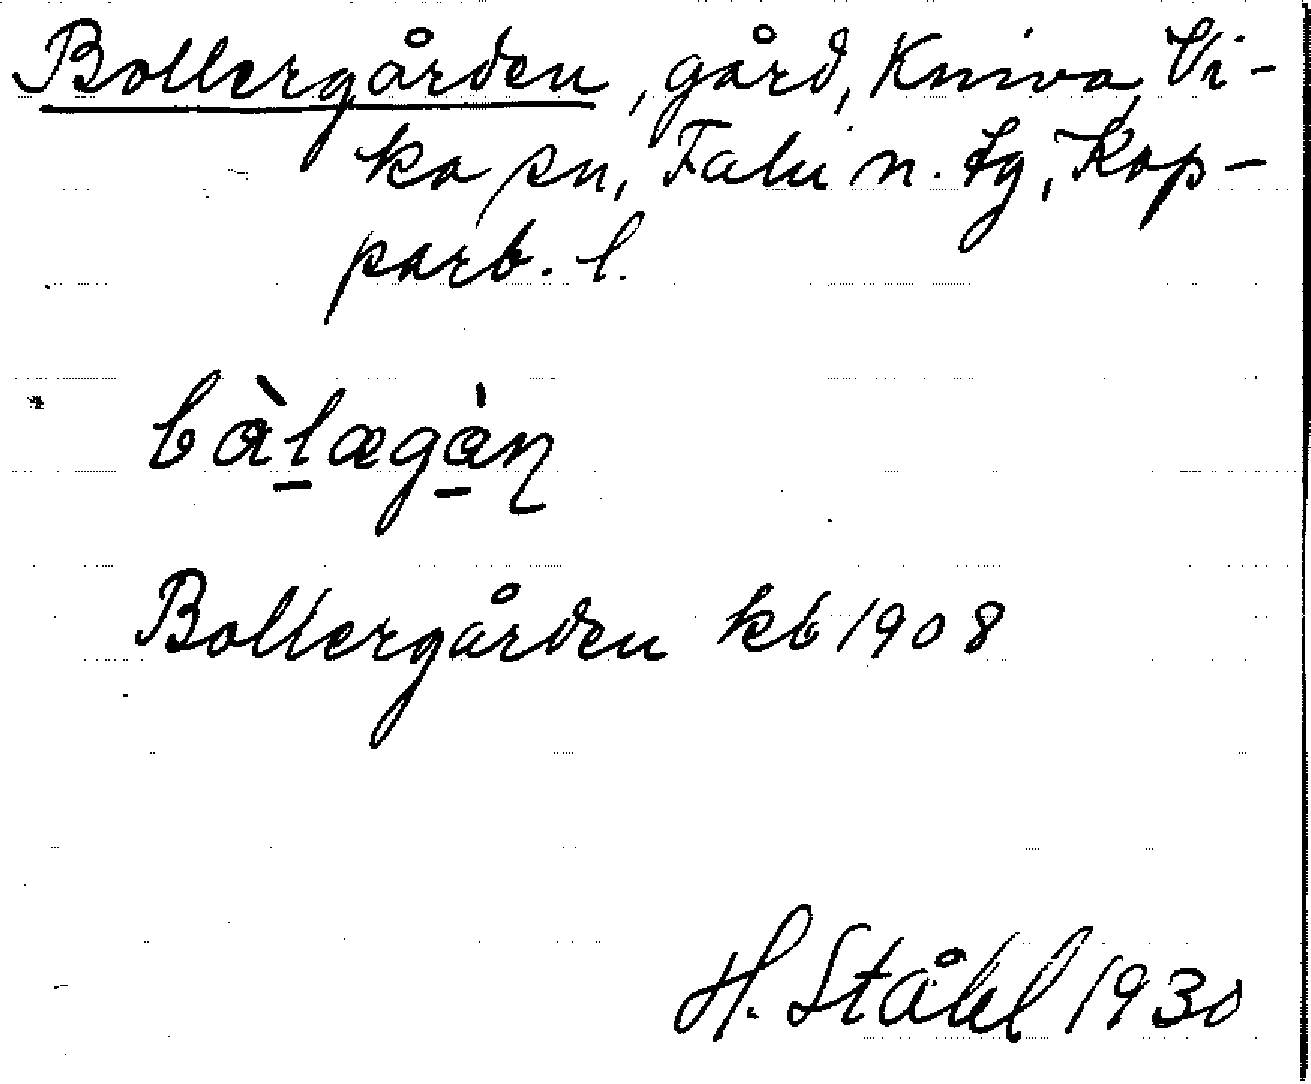 Bollergården, gård, Kniva, Vi-
ka sn, Falu n. tg, Kop-
parb. l.
bὰl̠ægὰ̠ɳ
Bollergården kb 1908
H. Ståhl 1930